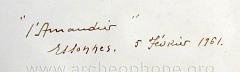 "l'Amandier"
Essonnes. 5 février 1961.
www.archeophone.org